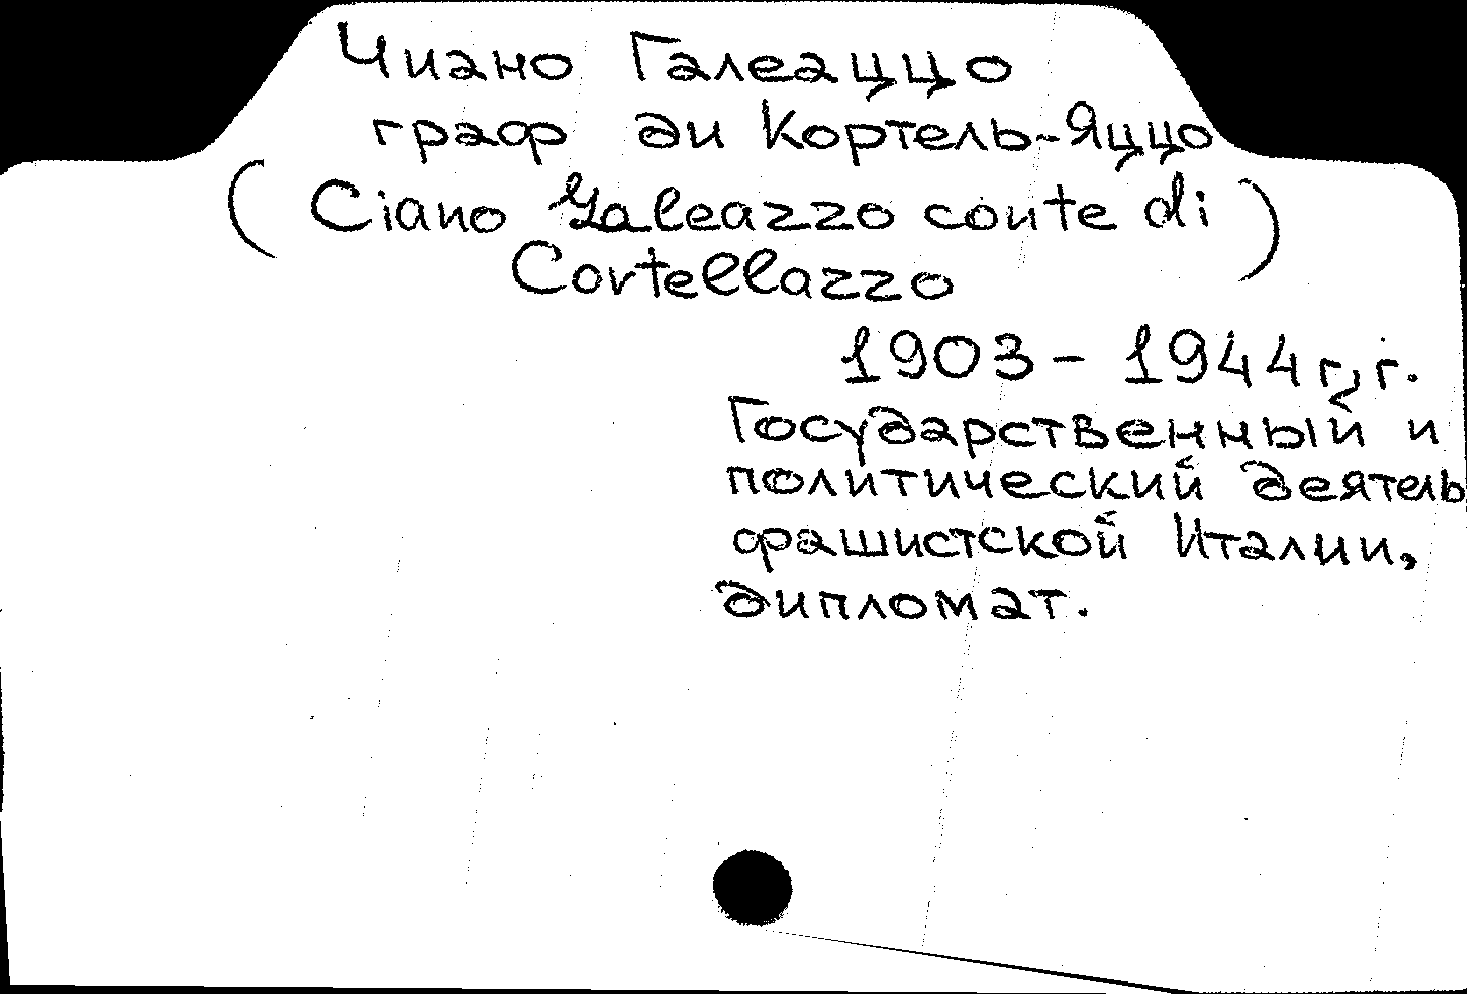 Чиано Галеаццо
граф ди Кортель-Яццо
(Ciano Galeazzo conte di)
Cortellazzo
1903-1944г,г.
Государственный и
политический деятель
фашистской Италии,
дипломат.